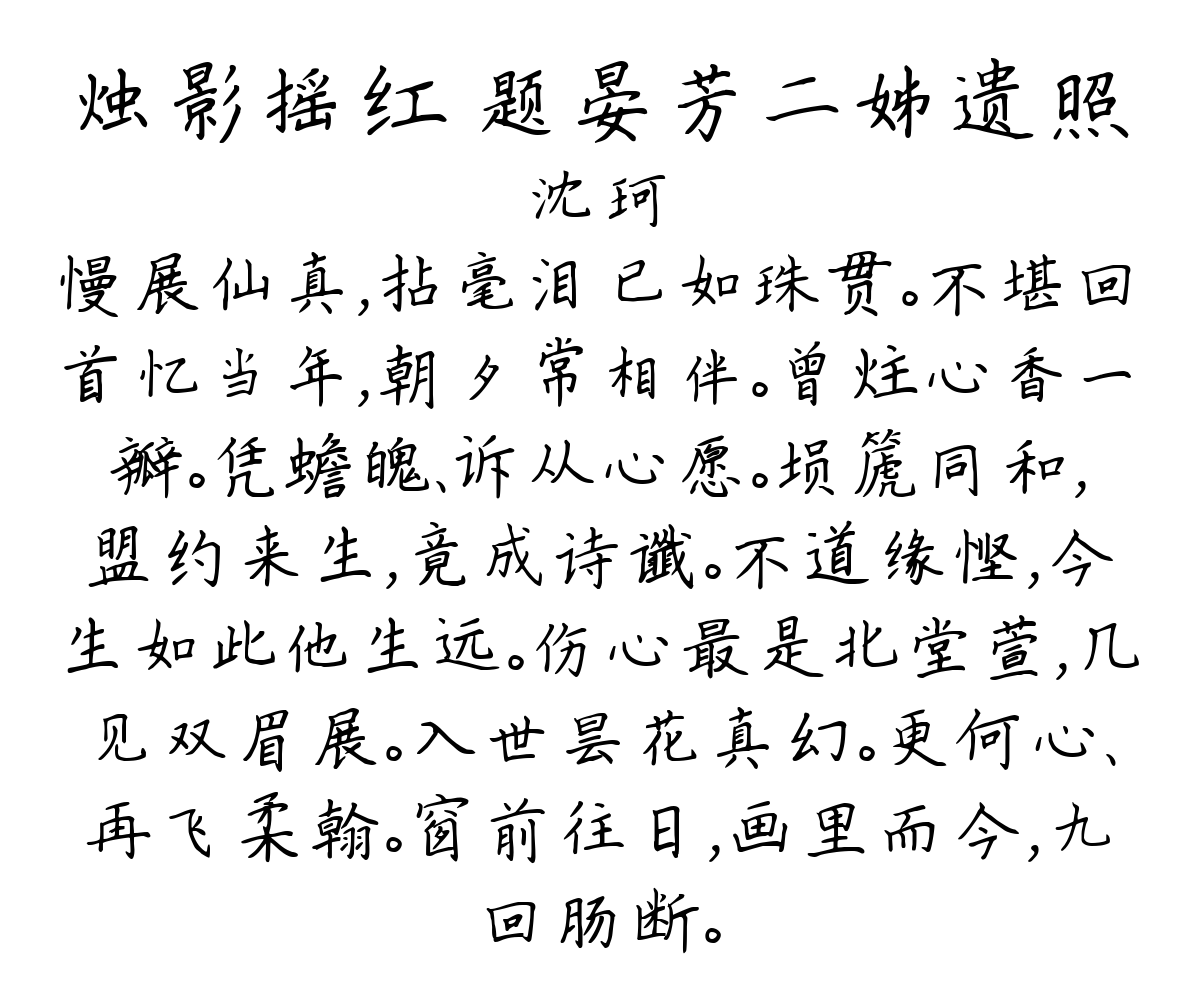 烛影摇红 题晏芳二姊遗照
沈珂
慢展仙真,拈毫泪已如珠贯。不堪回
首忆当年,朝夕常相伴。曾炷心香一
瓣。凭蟾魄、诉从心愿。埙篪同和,
盟约来生,竟成诗谶。不道缘悭,今
生如此他生远。伤心最是北堂萱,几
见双眉展。入世昙花真幻。更何心、
再飞柔翰。窗前往日,画里而今,九
回肠断。